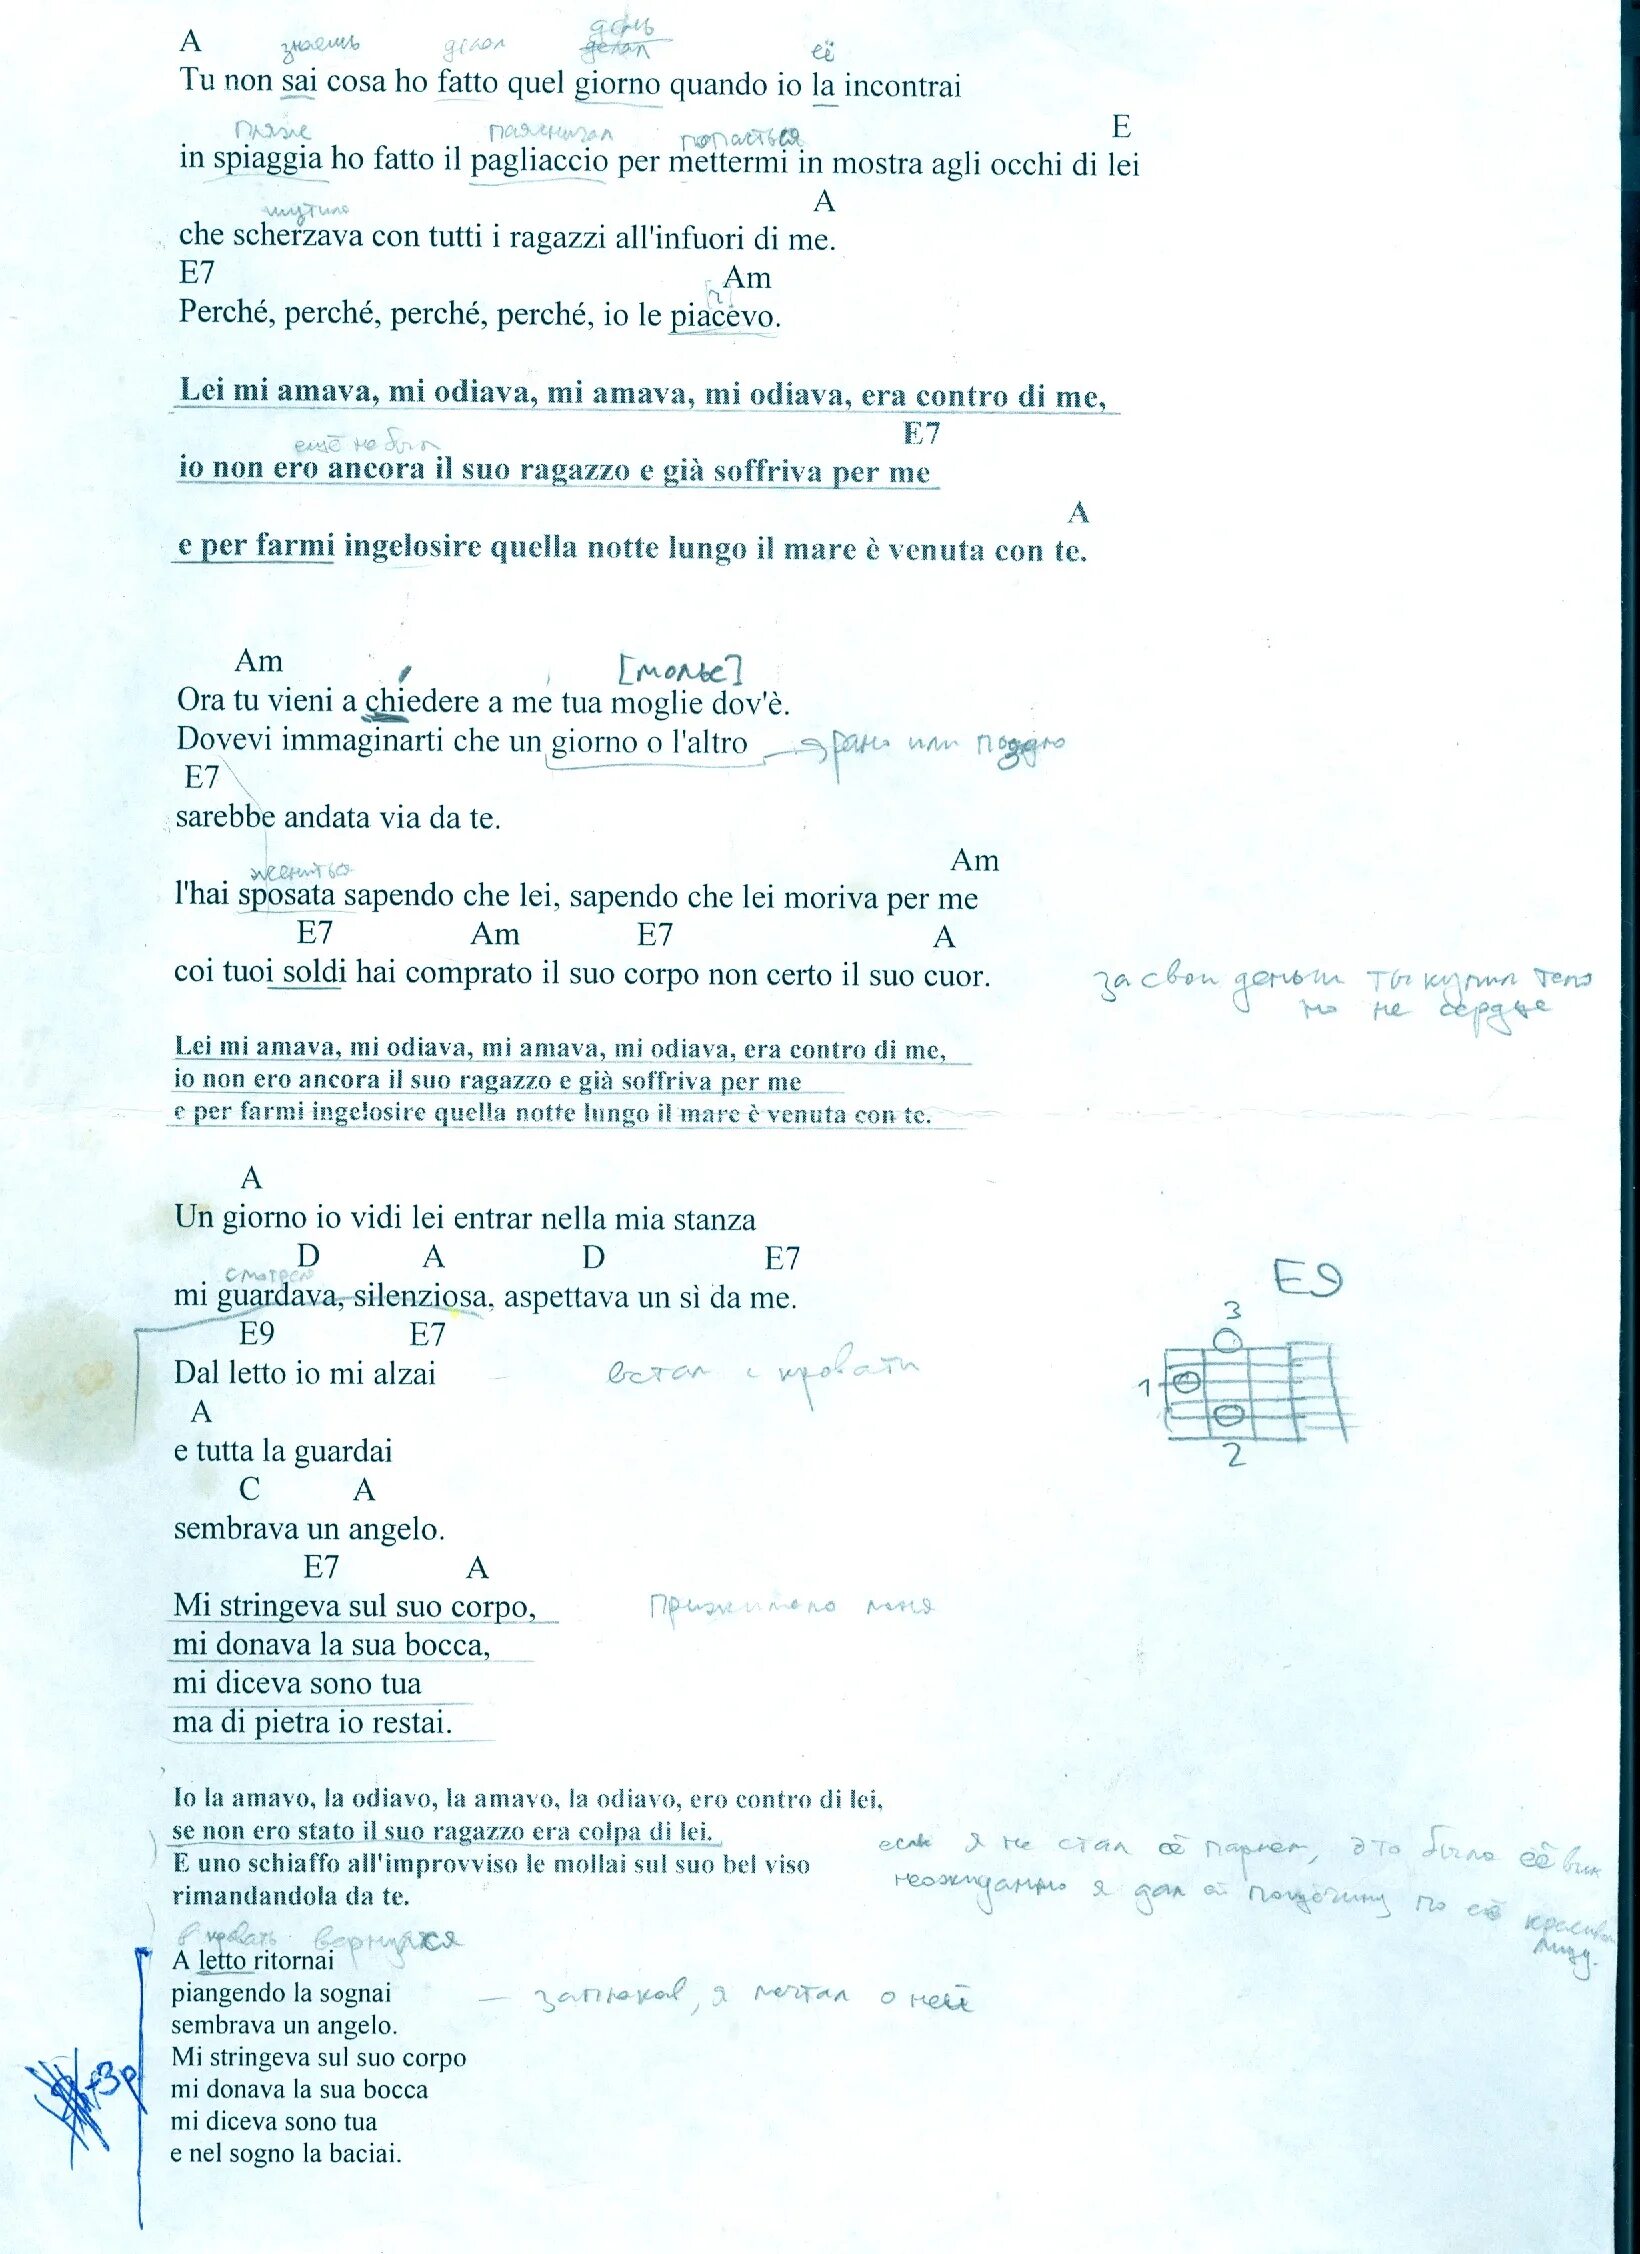 A знаешь делал день делал её
Tu non sai cosa ho fatto quel giorno quando io la incontrai
пляже попасться E
in spiaggia ho fatto il pagliaccio per mettermi in mostra agli occhi di lei
шутила A
che scherzava con tutti i ragazzi all'infuori di me.
E7 Am
Perché, perché, perché, perché, io le piacevo.
Lei mi amava, mi odiava, mi amava, mi odiava, era contro di me,
ещё не был E7
io non ero ancora il suo ragazzo e già soffriva per me
A
e per farmi ingelosire quella notte lungo il mare è venuta con te.
Am [молье]
Ora tu vieni a chiedere a me tua moglie dov'è.
Dovevi immaginarti che un giorno o l'altro рано или поздно
E7
sarebbe andata via da te.
Am
l'hai sposata sapendo che lei, sapendo che lei moriva per me
E7 Am E7 A
coi tuoi soldi hai comprato il suo corpo non certo il suo cuor. за свои деньги ты купил тело
но не сердце
Lei mi amava, mi odiava, mi amava, mi odiava, era contro di me,
io non ero ancora il suo ragazzo e già soffriva per me
e per farmi ingelosire quella notte lungo il mare è venuta con te.
A
Un giorno io vidi lei entrar nella mia stanza
D A D E7
E9
смотрел
mi guardava, silenziosa, aspettava un sì da me.
3
E9 E7
Dal letto io mi alzai встал с кровати
1
A
e tutta la guardai
2
C A
sembrava un angelo.
E7 A
Mi stringeva sul suo corpo, меня
mi donava la sua bocca,
mi diceva sono tua
ma di pietra io restai.
Io la amavo, la odiavo, la amavo, la odiavo, ero contro di lei,
se non ero stato il suo ragazzo era colpa di lei. если я не стал её парнем, это было её
E uno schiaffo all'improvviso le mollai sul suo bel viso неожиданно я дал ей пощёчину по её
rimandandola da te. лицу.
в кровать вернулся
A letto ritornai
piangendo la sognai — заплакав, я мечтал о ней
sembrava un angelo.
Mi stringeva sul suo corpo
+3р
mi donava la sua bocca
mi diceva sono tua
e nel sogno la baciai.